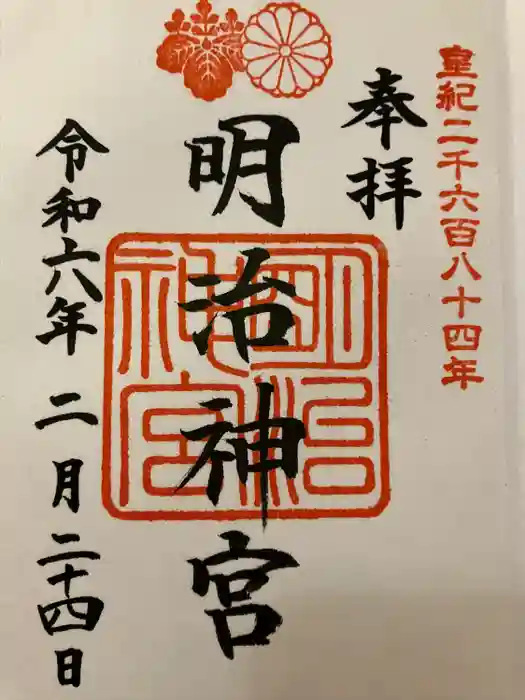 皇紀二千六百八十四年
奉拝
明治神宮
明治神宮
令和六年 二月 二十四日